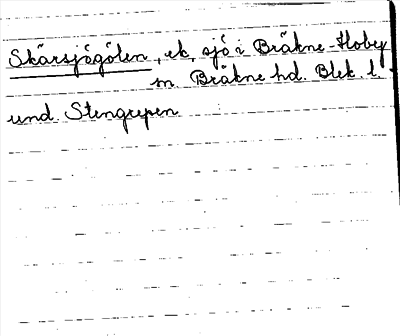 Skärsjögölen, ek. sjö i Bräkne-Hoby
sn. Bräkne hd. Blek. l.
und. Stengrepen